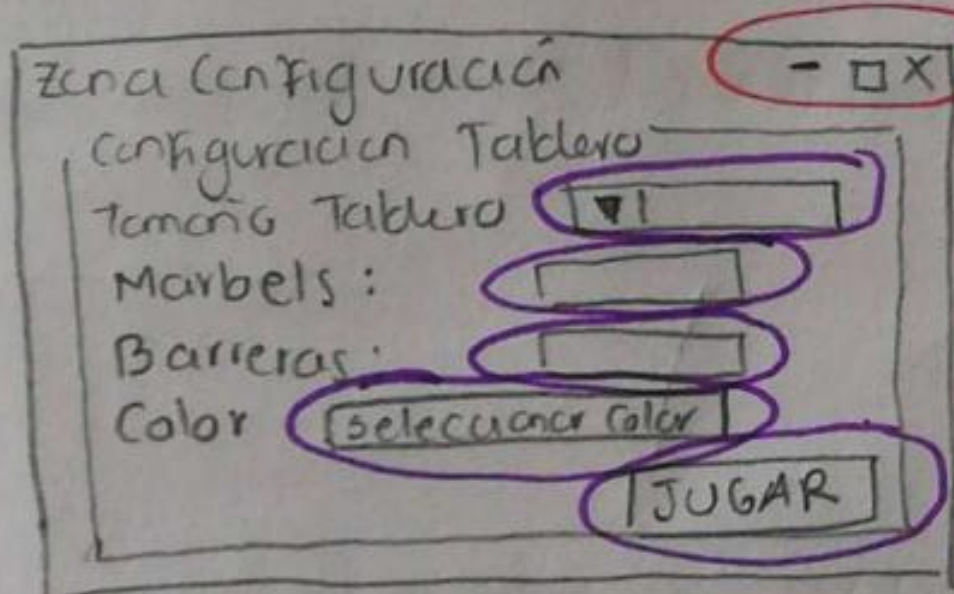 Zona Configuración - □ X
Configuración Tablero
Tamaño Tablero ▼
Marbels:
Barreras:
Color seleccionar Color
JUGAR